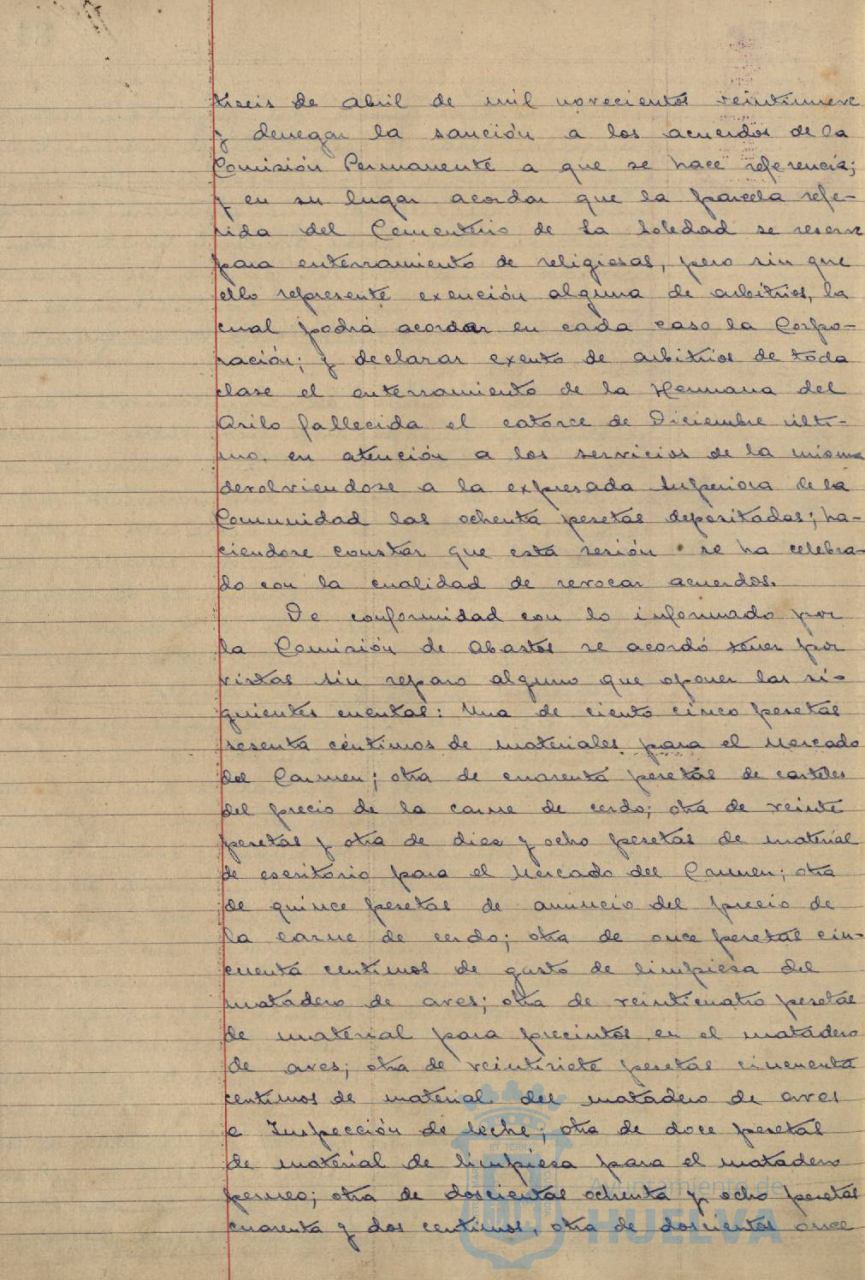 tiseis de Abril de mil novecientos veintinueve
y denegar la sanción a los acuerdos de la
Comisión Permanente a que se hace referencia;
y en su lugar acordar que la parcela refe-
rida del Cementerio de la Soledad se reserve
para enterramiento de religiosas, pero sin que
ello represente exención alguna de arbitrios, la
cual podrá acordar en cada caso la Corpo-
ración; y declarar exento de arbitrios de toda
clase el enterramiento de la Hermana del
Asilo fallecida el catorce de Diciembre últi-
mo, en atención a los servicios de la misma
devolviendose a la expresada Superiora de la
Comunidad las ochenta pesetas depositadas; ha-
ciendose constar que esta sesión se ha celebra-
do con la cualidad de revocar acuerdos.
De conformidad con lo informado por
la Comisión de Abastos se acordó tener por
vistas sin reparo alguno que oponer las si-
guientes cuentas: Una de ciento cinco pesetas
sesenta céntimos de materiales para el Mercado
del Carmen; otra de cuarenta pesetas de carteles
del precio de la carne de cerdo; otra de veinte
pesetas y otra de diez y ocho pesetas de material
de escritorio para el Mercado del Carmen; otra
de quince pesetas de anuncio del precio de
la carne de cerdo; otra de once pesetas cin-
cuenta centimos de gasto de limpiesa del
matadero de aves; otra de veinticuatro pesetas
de material para precintos en el matadero
de aves; otra de veintisiete pesetas cincuenta
centimos de material del matadero de aves
e Inspección de leche; otra de doce pesetas
de material de limpiesa para el matadero
permeo; otra de doscientas ochenta y ocho pesetas
cuarenta y dos centimos, otra de doscientos once
Ayuntamiento de
HUELVA